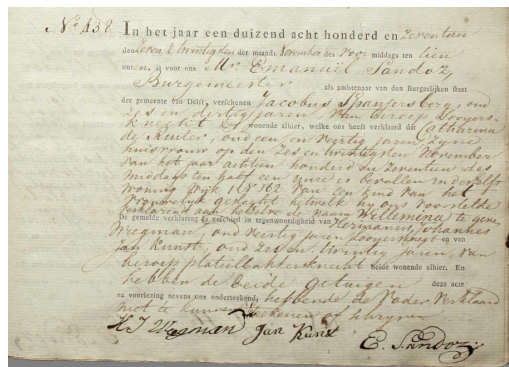 No 458 In het jaar een duizend acht honderd en Zeventien
den Zeven & twintigsten der maand November des voor middags ten tien
uuren, is voor ons Mr. Emanuël Sandoz,
Burgemeester als ambtenaar van den Burgerlijken staat
der gemeente van Delft, verschenen Jacobus Spanjersberg, oud
Zes en dertig jaren van beroep Looyers-
knegt wonende alhier, welke ons heeft verklaard dat Catharina
de Reuter, oud een en veertig jaren, zyne
huisvrouw op den Zes en twintigsten November
van het jaar achtien honderd en zeventien des
middags ten half een uure is bevallen in deszelfs
woning Wyk 1 N 162 van een kind van het
Vrouwelyk geslagt hetwelk hy ons voorstelde
verklarend aan hetzelve de naam Willemina te geven
De gemelde verklaring is geschied in tegenwoordigheid van Hermanus Johannes
Weegman, oud veertig jaren Looyersknegt en van
Jan Kunst, oud Zes en twintig jaren, van
beroep plateelbakkersknecht beide wonende alhier. En
hebben de beide getuigen deze acte
na voorlezing nevens ons onderteekend, hebbende de Vader verklaard
niet te kunnen tekenen of schryven
H J Weegman Jan Kunst E. Sandoz